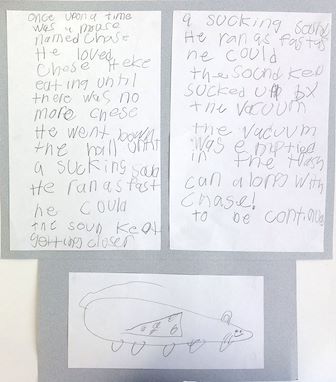 once upon a time
was a mouse
named Chase
He loved
chese Heke
eating until
there was no
more chese
He went down
the hall until
a sucking sound
He ran as fast
he could
the soun kept
getting closer
a sucking
He ran as fast as
he could
the sound kep
sucked up by
the vacuum
the vacuum
was emptied
in the trash
can along with
Chase!
to be continu